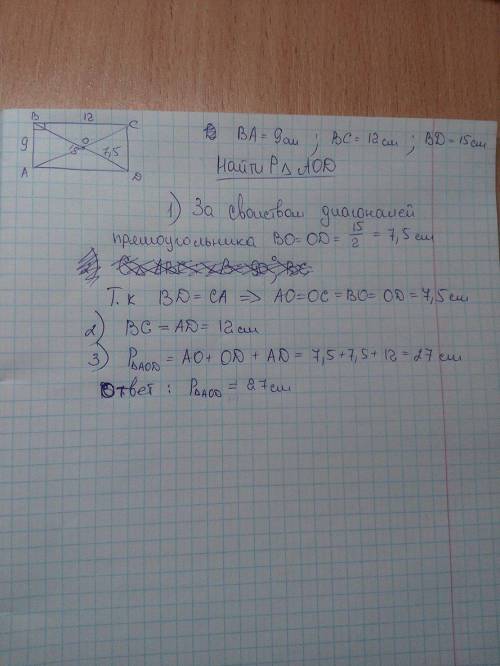 B 12 C
9 O 15 7,5
A D
BA = 9см ; BC = 12см ; BD = 15см
Найти P△ AOD
1) За свойством диагоналей
прямоугольника BO = OD = 15/2 = 7,5 см
Т.к BD = CA => AO = OC = BO = OD = 7,5 см
2) BC = AD = 12см
3) P△AOD = AO + OD + AD = 7,5 + 7,5 + 12 = 27 см
Ответ : P△AOD = 27см